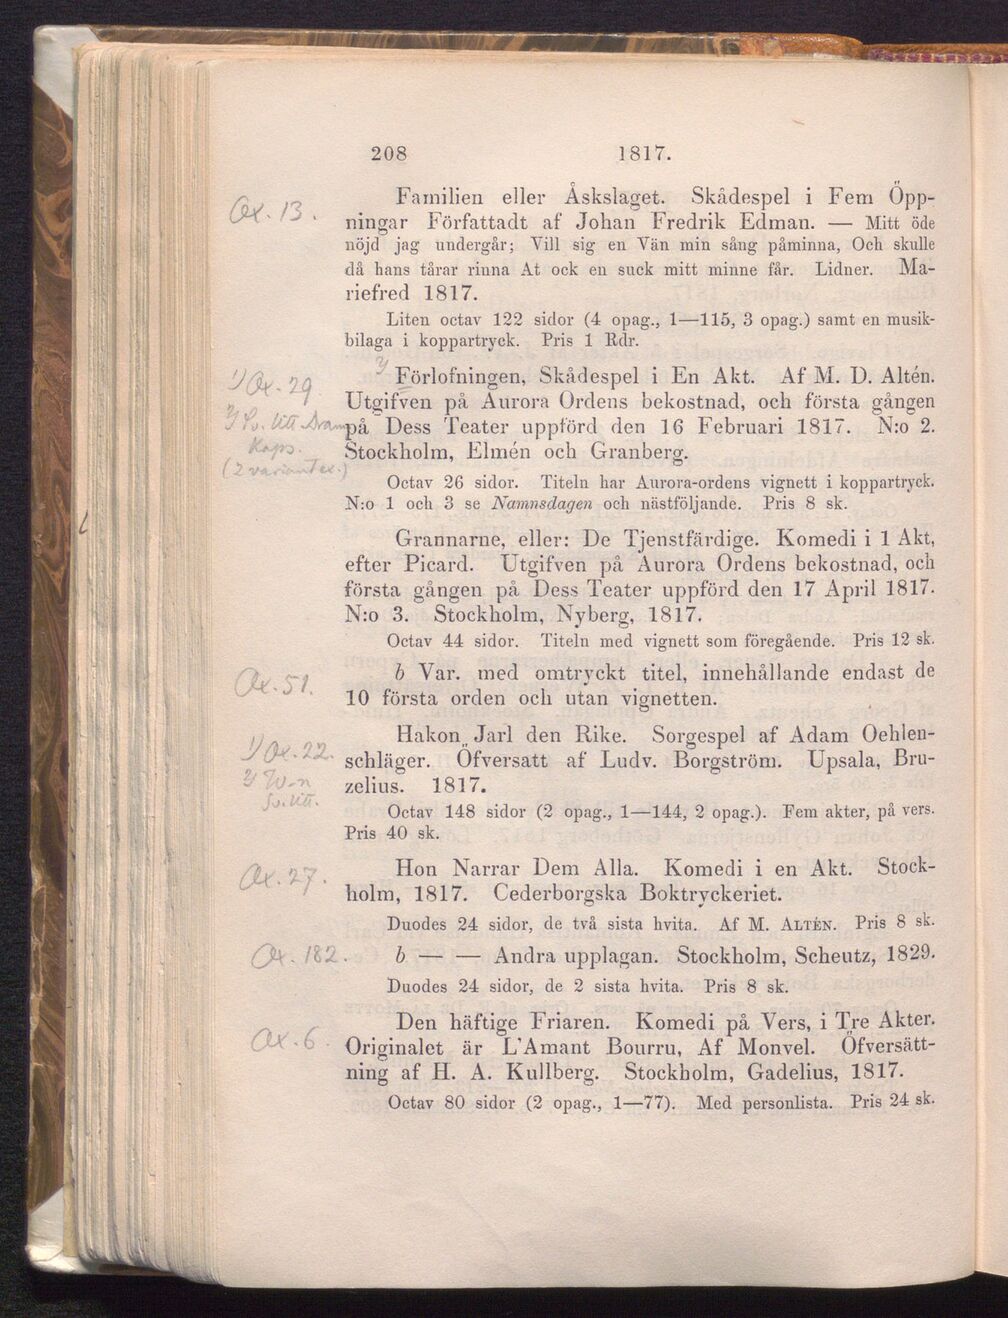 208 1817.
Ox. 13.
Familien eller Åskslaget. Skådespel i Fem Öpp-
ningar Författadt af Johan Fredrik Edman. — Mitt öde
nöjd jag undergår; Vill sig en Vän min sång påminna, Och skulle
då hans tårar rinna At ock en suck mitt minne får. Lidner. Ma-
riefred 1817.
Liten octav 122 sidor (4 opag., 1—115, 3 opag.) samt en musik-
bilaga i koppartryck. Pris 1 Rdr.
1) Ox. 29
2) Sv. litt. Dram.
Kaps.
(2 variantex.)
2) Förlofningen, Skådespel i En Akt. Af M. D. Altén.
Utgifven på Aurora Ordens bekostnad, och första gången
på Dess Teater uppförd den 16 Februari 1817. N:o 2.
Stockholm, Elmén och Granberg.
Octav 26 sidor. Titeln har Aurora-ordens vignett i koppartryck.
N:o 1 och 3 se Namnsdagen och nästföljande. Pris 8 sk.
Grannarne, eller: De Tjenstfärdige. Komedi i 1 Akt,
efter Picard. Utgifven på Aurora Ordens bekostnad, och
första gången på Dess Teater uppförd den 17 April 1817.
N:o 3. Stockholm, Nyberg, 1817.
Octav 44 sidor. Titeln med vignett som föregående. Pris 12 sk.
Ox. 51.
b Var. med omtryckt titel, innehållande endast de
10 första orden och utan vignetten.
1) Ox. 22.
Sv. litt.
Hakon Jarl den Rike. Sorgespel af Adam Oehlen-
schläger. Öfversatt af Ludv. Borgström. Upsala, Bru-
zelius. 1817.
Octav 148 sidor (2 opag., 1—144, 2 opag.). Fem akter, på vers.
Pris 40 sk.
Ox. 27.
Hon Narrar Dem Alla. Komedi i en Akt. Stock-
holm, 1817. Cederborgska Boktryckeriet.
Duodes 24 sidor, de två sista hvita. Af M. ALTÉN. Pris 8 sk.
Ox. 182.
b — — Andra upplagan. Stockholm, Scheutz, 1829.
Duodes 24 sidor, de 2 sista hvita. Pris 8 sk.
Ox. 6.
Den häftige Friaren. Komedi på Vers, i Tre Akter.
Originalet är L'Amant Bourru, Af Monvel. Öfversätt-
ning af H. A. Kullberg. Stockholm, Gadelius, 1817.
Octav 80 sidor (2 opag., 1—77). Med personlista. Pris 24 sk.